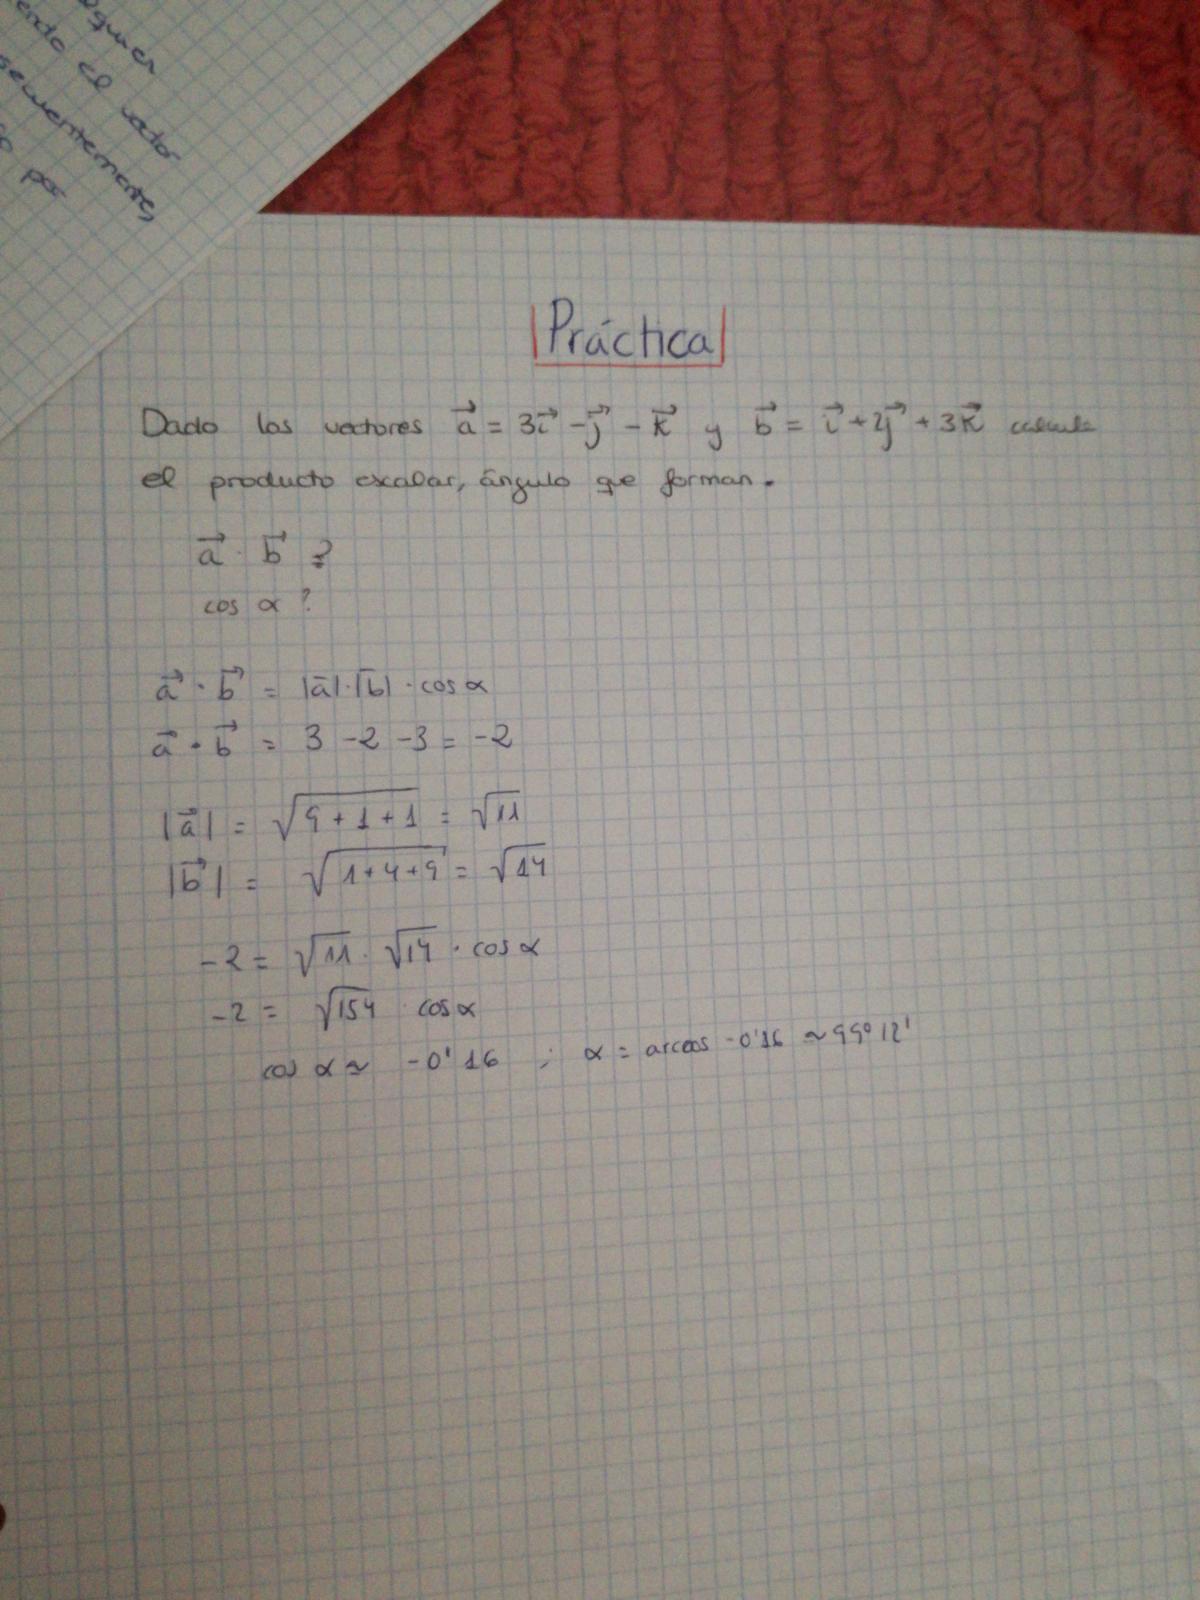 el vector
por
Práctica
Dado los vectores a⃗ = 3i⃗ - j⃗ - k⃗ y b⃗ = i⃗ + 2j⃗ + 3k⃗ calcula
el producto escalar, ángulo que forman.
a⃗ · b⃗ ?
cos α ?
a⃗ · b⃗ = |a̅| · |b̅| · cos α
a⃗ · b⃗ = 3 - 2 - 3 = -2
|a⃗| = √(9 + 1 + 1) = √11
|b⃗| = √(1 + 4 + 9) = √14
-2 = √11 · √14 · cos α
-2 = √154 · cos α
cos α ≃ -0'16 ; α = arccos -0'16 ≃ 99º 12'